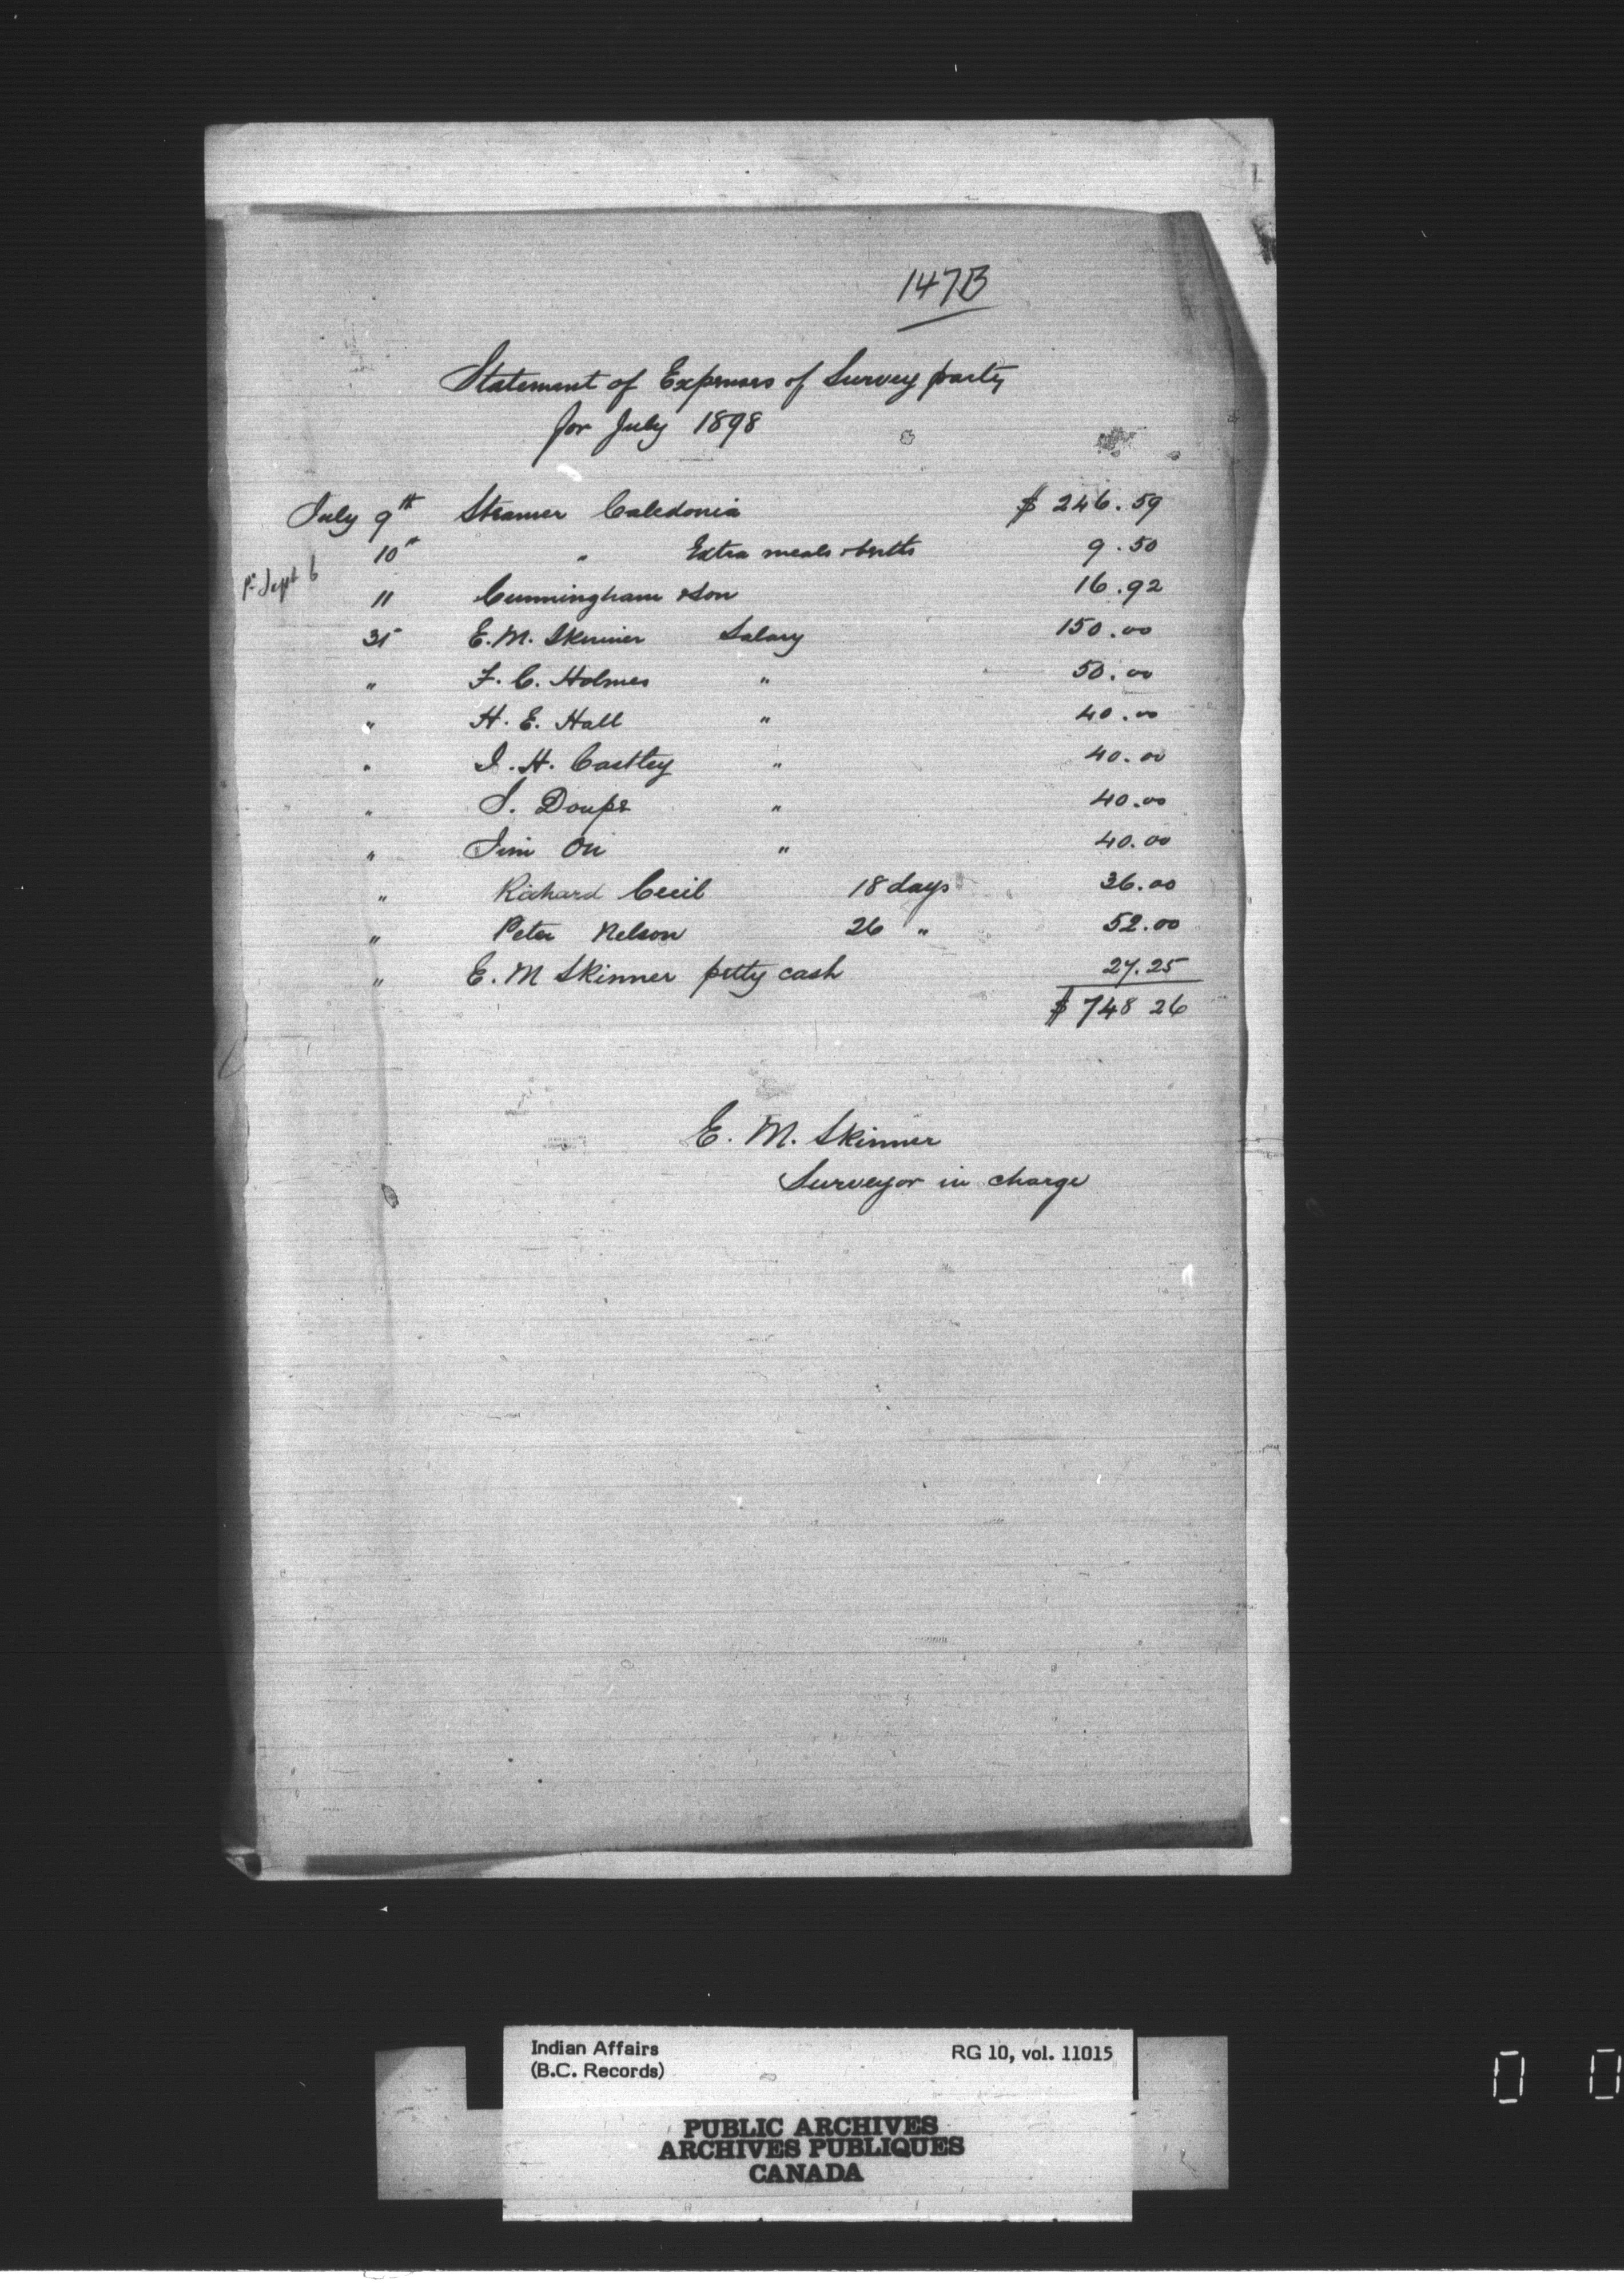 147B
Statement of Expenses of Survey party
for July 1898
July 9th Steamer Caledonia $ 246.59
10th " Extra meals & berths 9.50
Pd Sept 6
11 Cunningham & Son 16.92
31 E. M. Skinner Salary 150.00
" F. C. Holmes " 50.00
" H. E. Hall " 40.00
" J. H. Castley " 40.00
" J. Doupe " 40.00
" Jim On " 40.00
" Richard Cecil 18 days 36.00
" Peter Nelson 26 " 52.00
" E. M Skinner petty cash 27.25
$ 748 26
E. M. Skinner
Surveyor in charge
Indian Affairs RG 10, vol. 11015
(B.C. Records)
PUBLIC ARCHIVES
ARCHIVES PUBLIQUES
CANADA
0 0